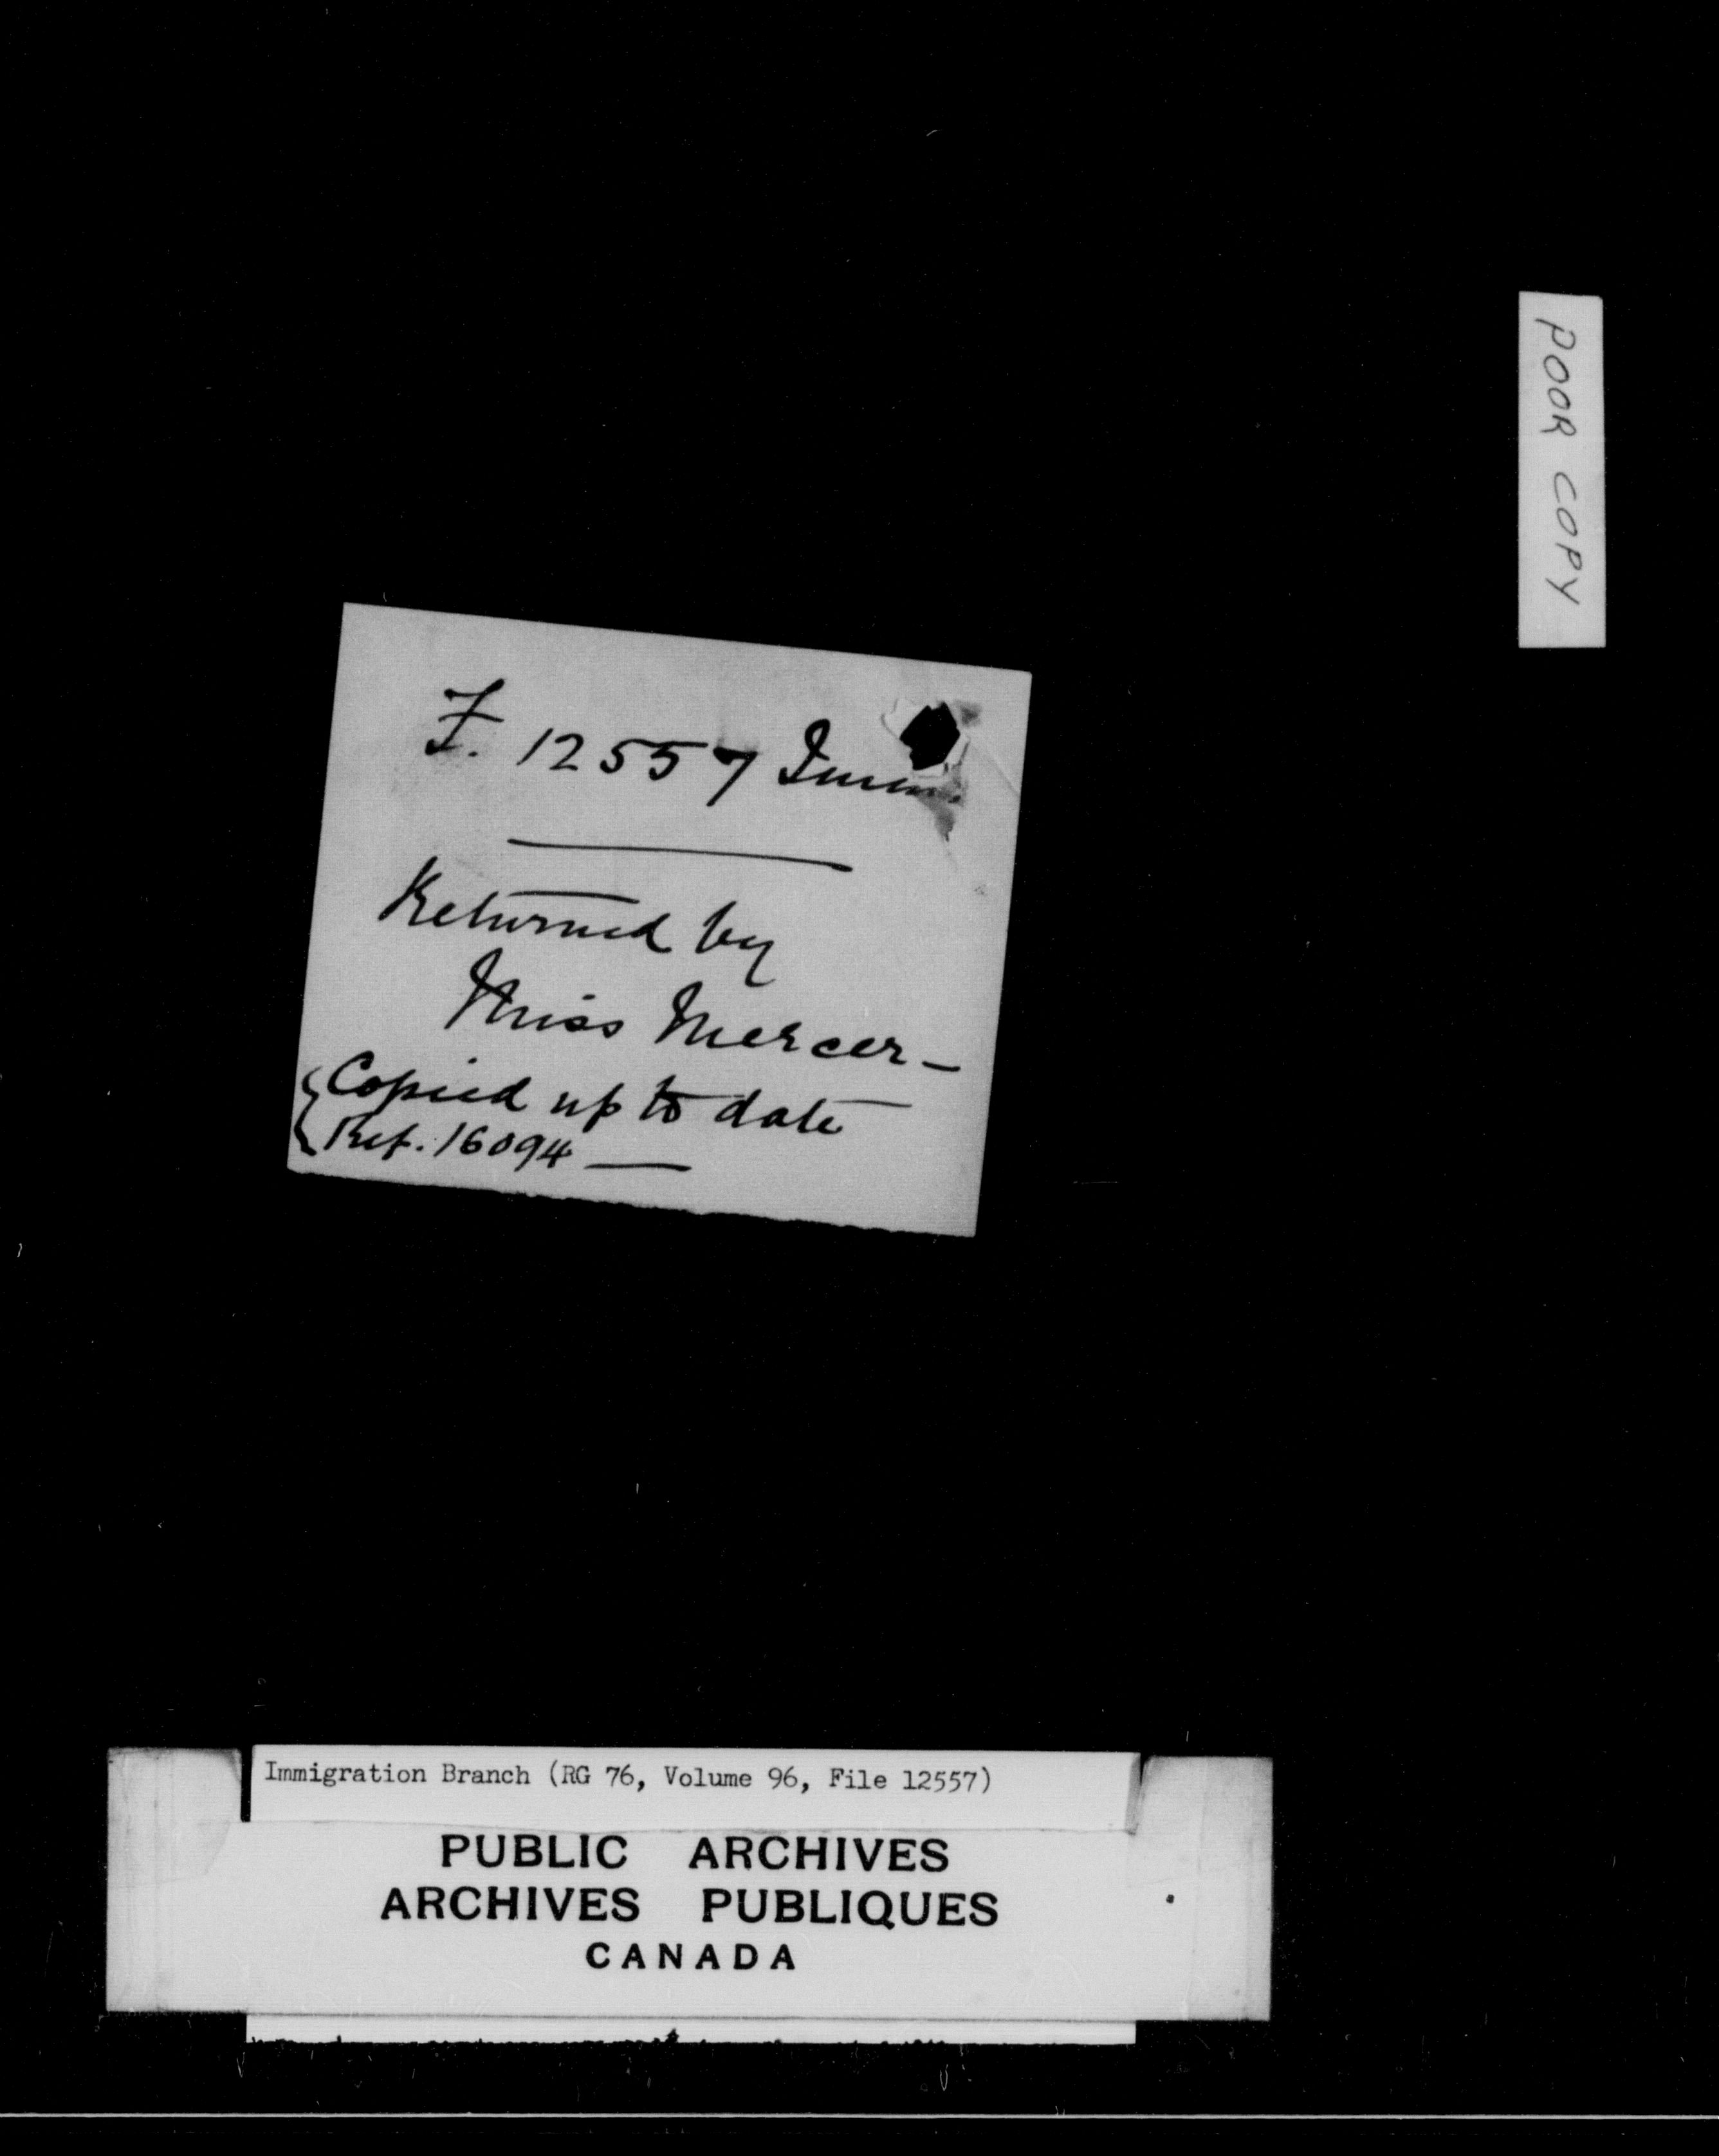 POOR COPY
F. 12557 Imm.
Returned by
Miss Mercer -
Copied up to date
Ref. 16094
Immigration Branch (RG 76, Volume 96, File 12557)
PUBLIC ARCHIVES
ARCHIVES PUBLIQUES
CANADA